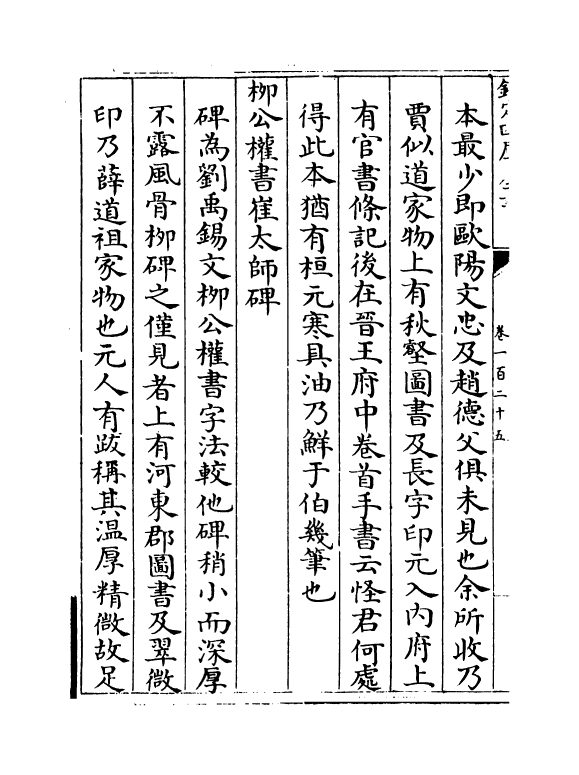 本最少即歐陽文忠及趙德父俱未見也余所收乃
賈似道家物上有秋壑圖書及長字印元入內府上
有官書條記後在晉王府中卷首手書云怪君何處
得此本猶有桓元寒具油乃鮮于伯幾筆也
柳公權書崔太師碑
碑為劉禹錫文柳公權書字法較他碑稍小而深厚
不露風骨柳碑之僅見者上有河東郡圖書及翠微
印乃薛道祖家物也元人有跋稱其温厚精微故足
卷一百二十五